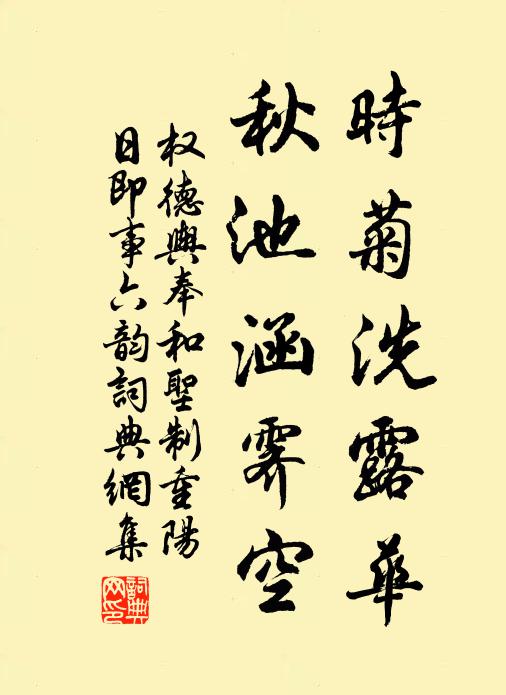 時菊洗露華
秋池涵霽空
权德輿奉和聖制重陽
日即事六韵詞典網集
詞典
网印